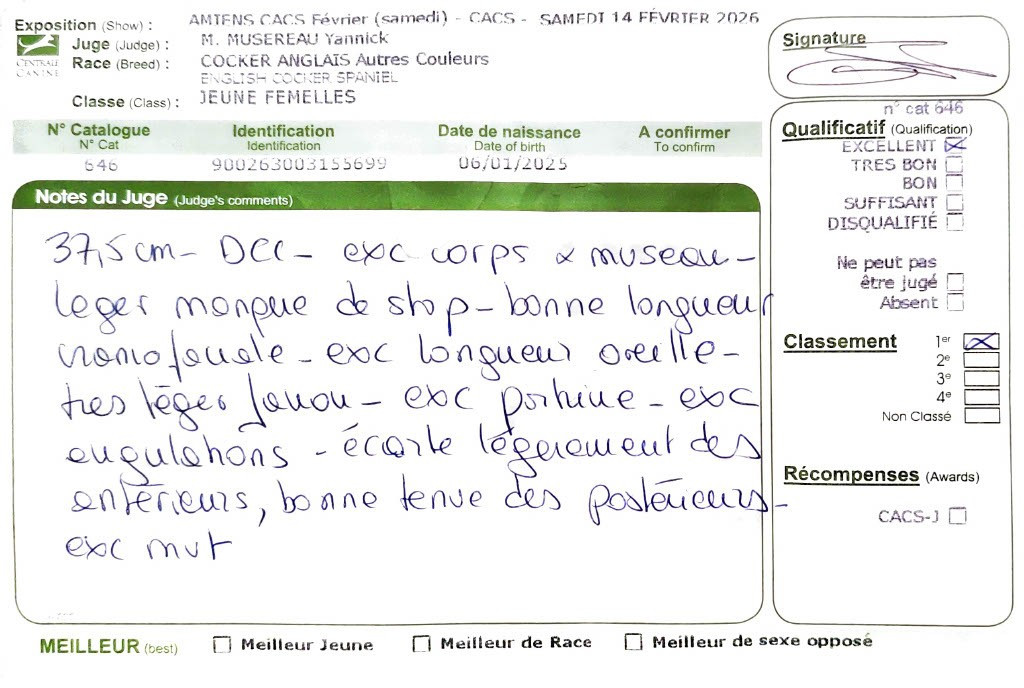 Exposition (Show) : AMIENS CACS Février (samedi) - CACS - SAMEDI 14 FÉVRIER 2026
Juge (Judge) : M. MUSEREAU Yannick
CENTRALE CANINE
Race (Breed) : COCKER ANGLAIS Autres Couleurs
ENGLISH COCKER SPANIEL
Classe (Class) : JEUNE FEMELLES
Signature
N° Catalogue Identification Date de naissance A confirmer
N° Cat Identification Date of birth To confirm
646 900263003155699 06/01/2025
Notes du Juge (Judge's comments)
37,5 cm - DCC - exc corps & museau -
léger manque de stop - bonne longueur
cranofaciale - exc longueur oreille -
très léger fanon - exc poitrine - exc
angulations - écarte légèrement des
antérieurs, bonne tenue des postérieurs -
exc mvt
n° cat 646
Qualificatif (Qualification)
EXCELLENT
TRES BON
BON
SUFFISANT
DISQUALIFIÉ
Ne peut pas
être jugé
Absent
Classement 1er
2e
3e
4e
Non Classé
Récompenses (Awards)
CACS-J
MEILLEUR (best) Meilleur Jeune Meilleur de Race Meilleur de sexe opposé